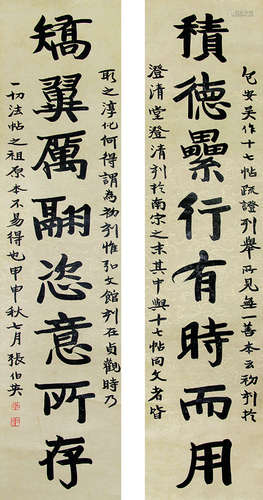 積德纍行有時而用
包安吳作十七帖疏證列舉所見無一善本云初刻於
澄清堂澄清刻於南宗之末其中與十七帖同文者皆
矯翼厲翮恣意所存
取之淳化何得謂為初刻惟弘文館刻在貞觀時乃
一切法帖之祖原本不易得也甲申秋七月張伯英